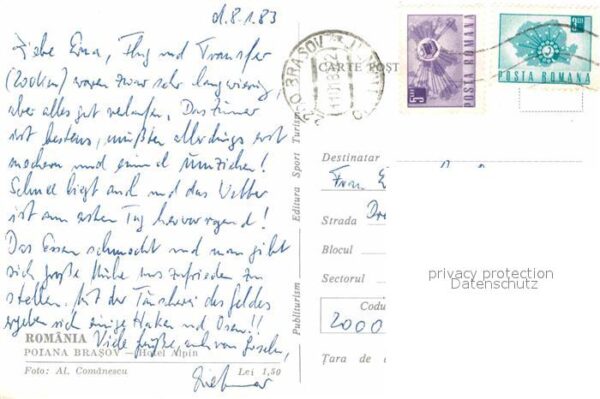 d. 8.1.83
Liebe Erna, Flug und Transfer
(200 km) waren zwar sehr langwierig,
aber alles gut verlaufen. Das Zimmer
ist bestens, mußten allerdings erst
meckern und einmal umziehen!
Schnee liegt auch und das Wetter
ist am ersten Tag hervorragend!
Das Essen schmeckt und man gibt
sich große Mühe uns zufrieden zu
stellen. Mit der Tauscherei des Geldes
ergeben sich einige Haken und Ösen!!
Viele Grüße, auch von
Dietmar
ROMÂNIA
POIANA BRAȘOV — Hotel Alpin
Foto: Al. Comănescu Lei 1,50
Publiturism — Editura Sport Turism
BRAȘOV
CARTE POST
5 LEI POSTA ROMANA
POSTA ROMANA
Destinatar
Frau E
Strada
Blocul
Sectorul
Codu
2000
Țara de
privacy protection
Datenschutz